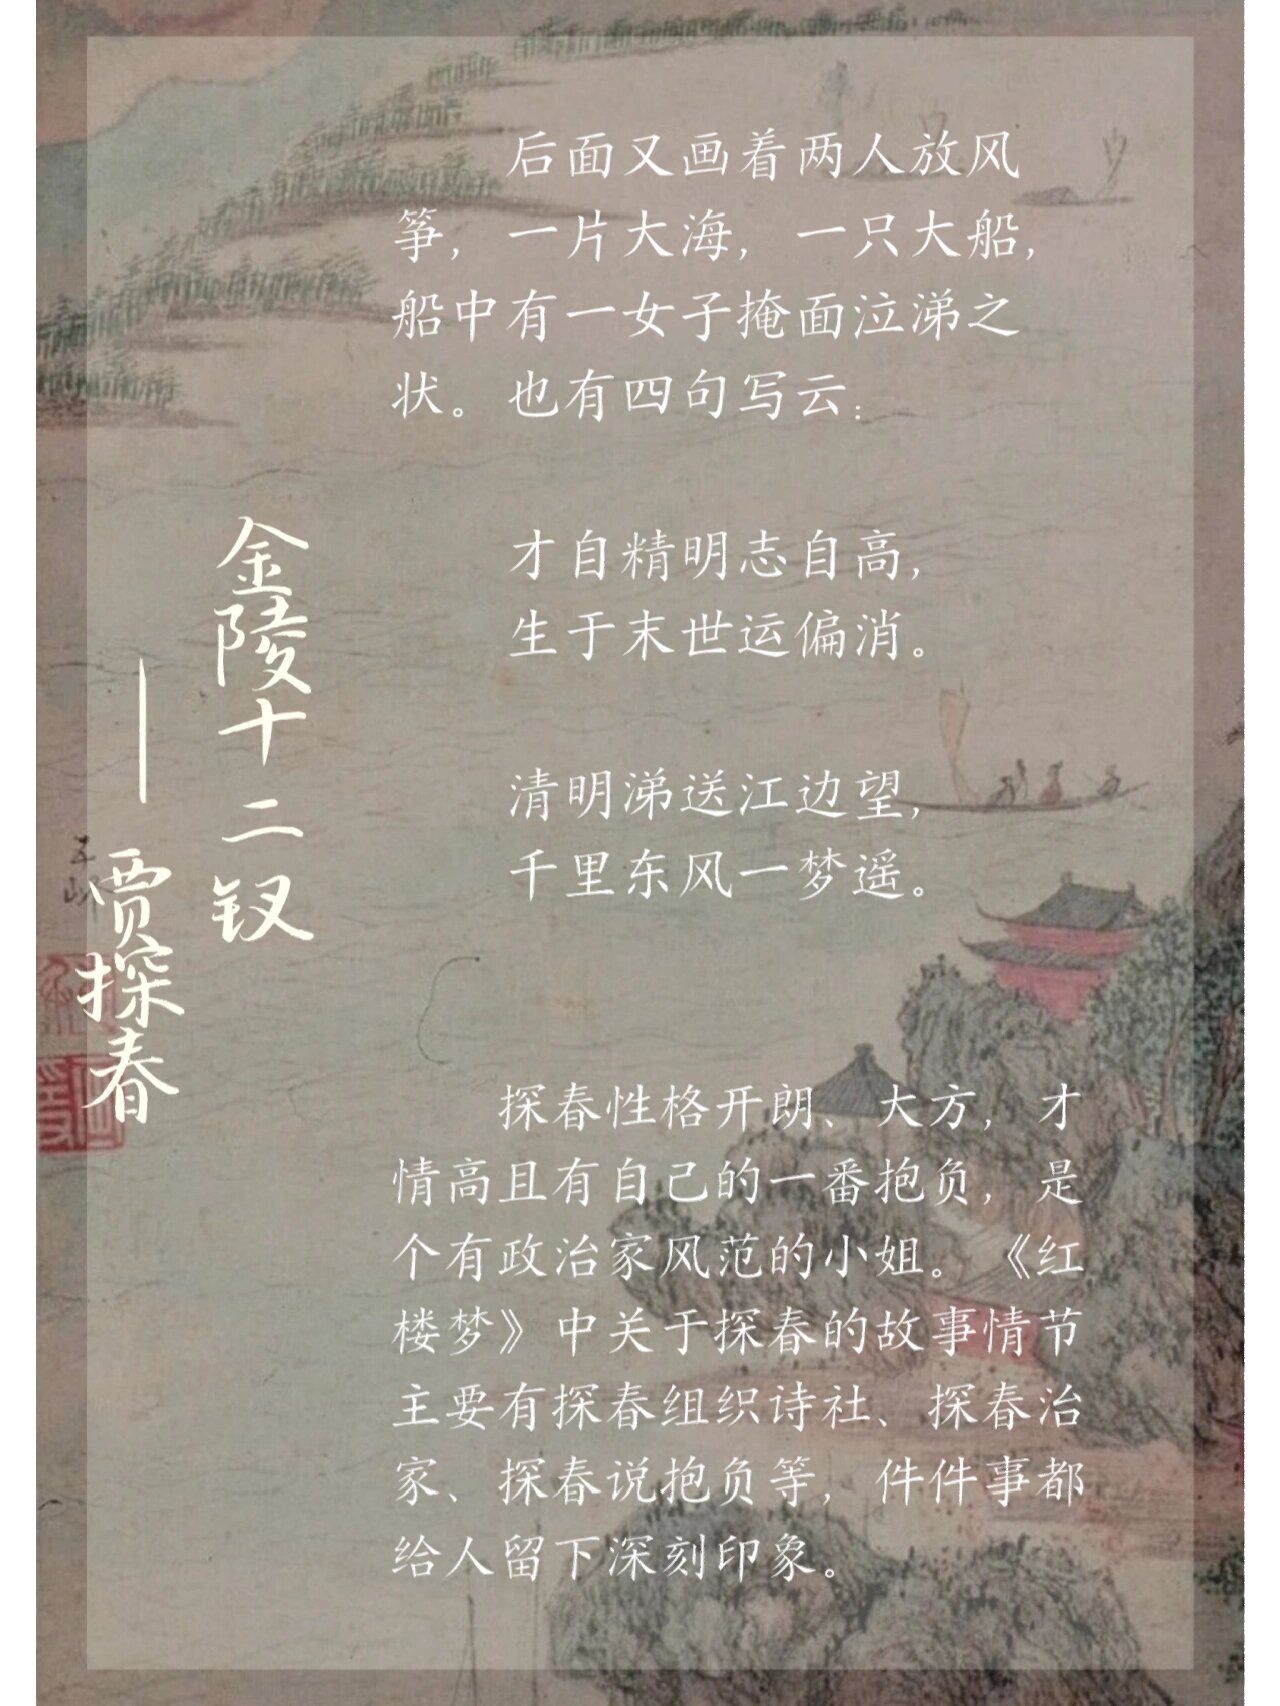 金陵十二钗
——贾探春
后面又画着两人放风
筝，一片大海，一只大船，
船中有一女子掩面泣涕之
状。也有四句写云：
才自精明志自高，
生于末世运偏消。
清明涕送江边望，
千里东风一梦遥。
探春性格开朗、大方，才
情高且有自己的一番抱负，是
个有政治家风范的小姐。《红
楼梦》中关于探春的故事情节
主要有探春组织诗社、探春治
家、探春说抱负等，件件事都
给人留下深刻印象。